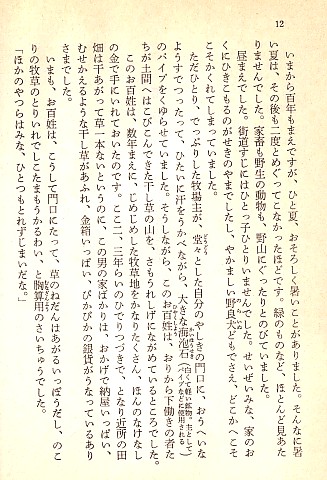 12
いまから百年もまえですが、ひと夏、おそろしく暑いことがありました。そんなに暑
い夏は、その後も二度とめぐってこなかったほどです。緑のものなど、ほとんど見あた
りませんでした。家畜も野生の動物も、野山にぐったりとのびていました。
昼まえでした。街道すじにはひとっ子ひとりいませんでした。せいぜいみな、家のお
くにひきこもるのがせきのやまでしたし、やかましい野良犬どもでさえ、どこかへこそ
こそかくれてしまっていました。
ただひとり、でっぷりした牧場主が、堂々とした自分のやしきの門口に、おうへいな
ようすでつったって、ひたいに汗をうかべながら、大きな海泡石(白くて軽い鉱物。主として
パイプなどに使用される)
のパイプをくゆらせていました。そうしながら、このお百姓は、おりから下働きの者た
ちが土間へはこびこんできた干し草の山を、さもうれしげにながめているところでした。
このお百姓は、数年まえに、じめじめした牧草地をかなりたくさん、ほんのなけなし
の金で手にいれておいたのです。ここ二、三年らいのひでりつづきで、となり近所の田
畑は干あがって草一本ないというのに、この男の家ばかりは、おかげで納屋いっぱい、
むせかえるような干し草があふれ、金箱いっぱい、ぴかぴかの銀貨がうなっているあり
さまでした。
いまも、お百姓は、こうして門口にたって、草のねだんはあがるいっぽうだし、のこ
りの牧草のとりいれでしこたまもうかるわい、と胸算用のさいちゅうでした。
「ほかのやつらはみな、ひとつもとれずじまいだな。」